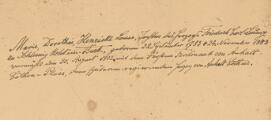 Marie Dorothea Henriette Louise, Tochter des Herzogs Friedrich Karl Ludwig
zu Schleswig Holstein-Beck, geboren 28. September 1783 † 24. November 1803
vermählt den 20. August 1803 mit dem Fürsten Ferdinand von Anhalt-
Köthen-Pless, dem späteren regierenden Herzog von Anhalt Köthen.